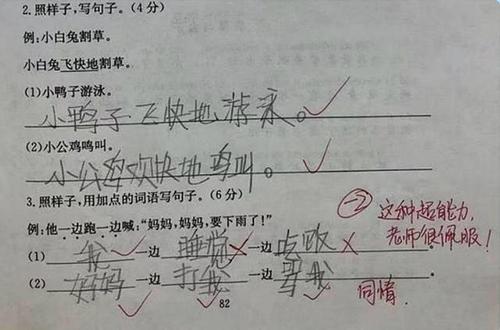 2.照样子,写句子。(4分)
例:小白兔割草。
小白兔飞快地割草。
(1)小鸭子游泳。
小鸭子飞快地游泳。
(2)小公鸡鸣叫。
小公鸡欢快地鸣叫。
3.照样子,用加点的词语写句子。(6分)
例:他一边跑一边喊:“妈妈,妈妈,要下雨了!”
(1)我一边睡觉一边吃饭。
(2)妈妈一边打我一边骂我。
-2 这种超能力,
老师很佩服!
同情
82